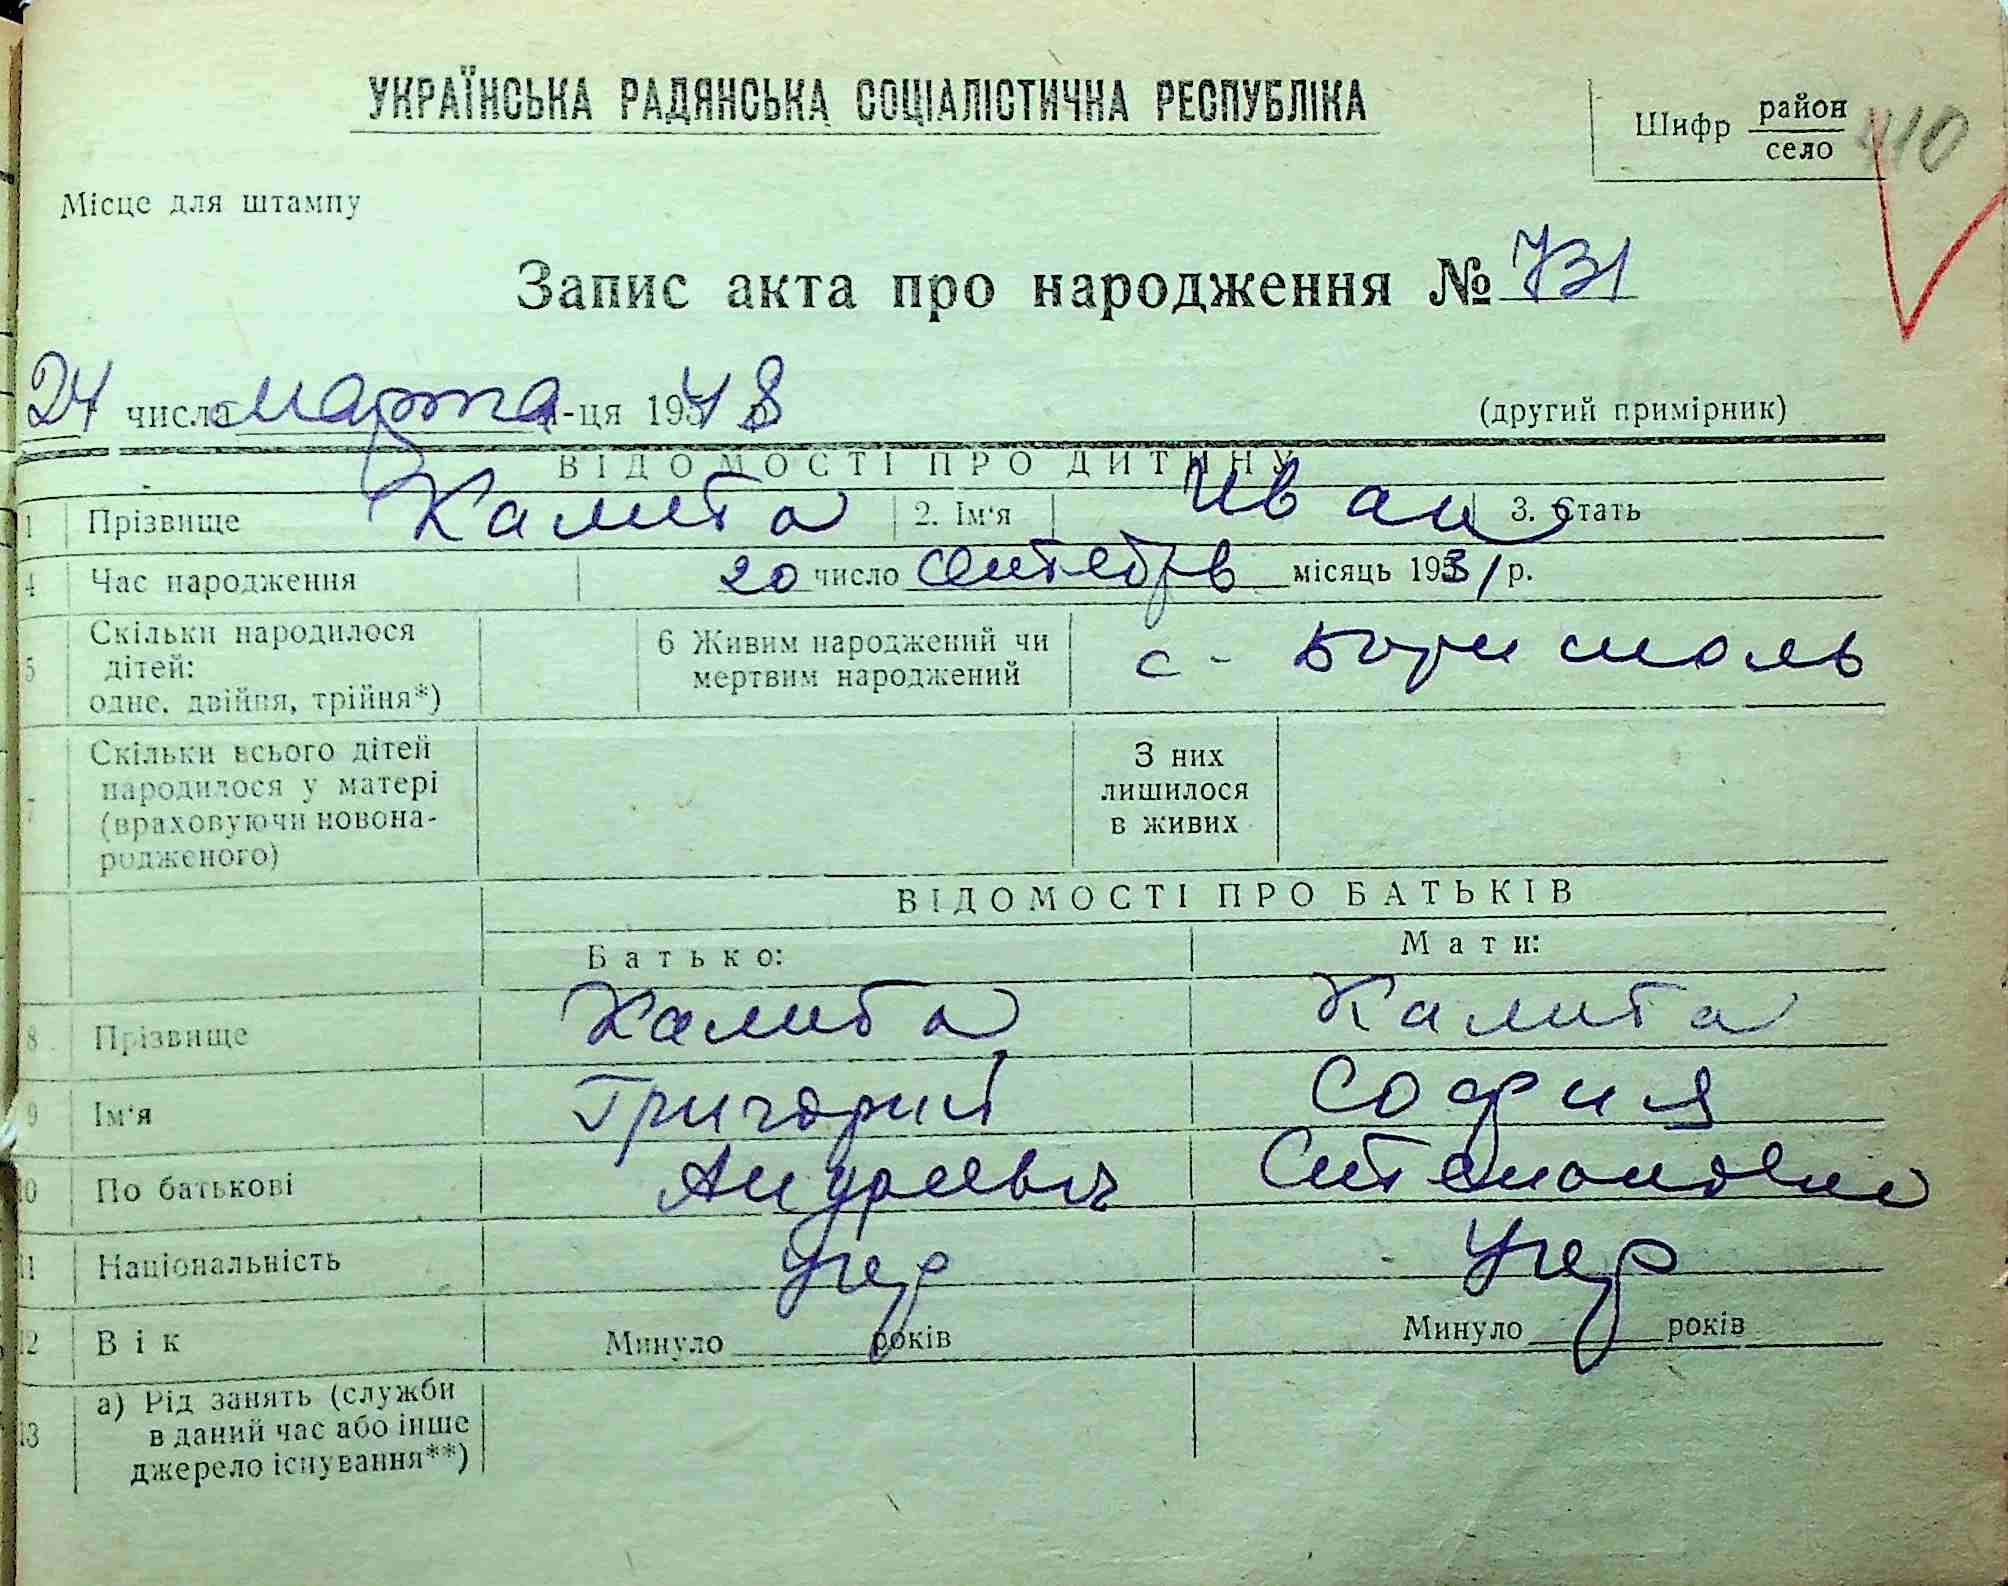 УКРАЇНСЬКА РАДЯНСЬКА СОЦІАЛІСТИЧНА РЕСПУБЛІКА
Шифр район
село 110
Місце для штампу
Запис акта про народження № 731
24 число марта м-ця 1948
(другий примірник)
ВІДОМОСТІ ПРО ДИТИНУ
1 Прізвище Калита 2. Ім'я Иван 3. Стать
4 Час народження 20 число сентебрв місяць 1931 р.
5 Скільки народилося дітей: одне, двійня, трійня*) 6 Живим народжений чи мертвим народжений с-Бориспль
7 Скільки всього дітей народилося у матері (враховуючи новонародженого) З них лишилося в живих
ВІДОМОСТІ ПРО БАТЬКІВ
Батько: Мати:
8 Прізвище Калита Калита
9 Ім'я Григорий София
10 По батькові Андреевич
11 Національність Укр Укр
12 Вік Минуло років Минуло років
13 а) Рід занять (служби в даний час або інше джерело існування**)